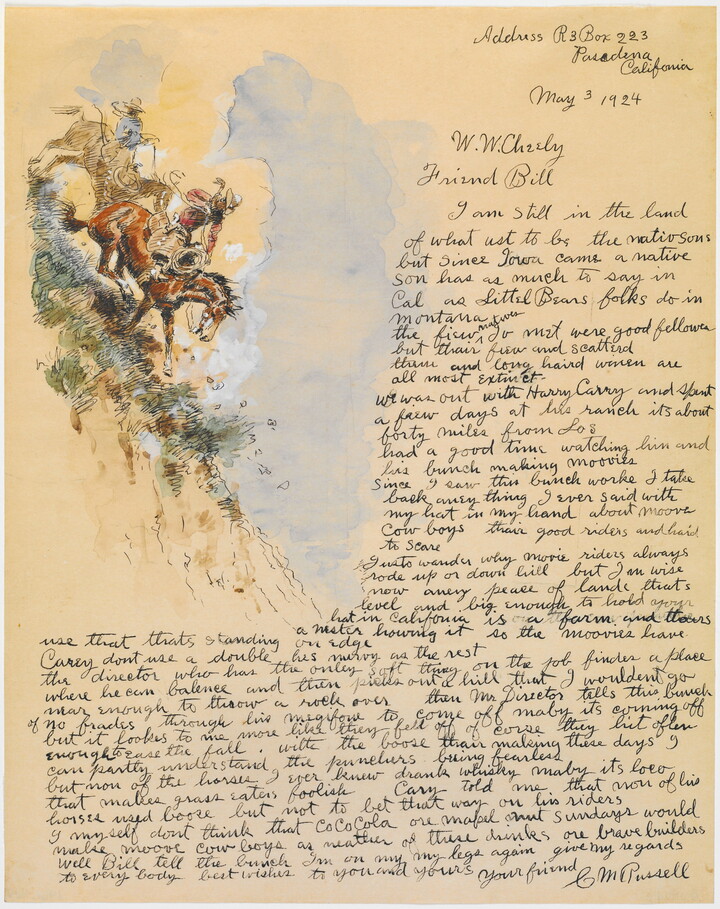 Address R3 Box 223
Pasadena
Califonia
May 3 1924
W. W. Cheely
Friend Bill
I am still in the land
of what ust to be the nativ sons
but since Iowa came a native
son has as much to say in
Cal as Littel Bears folks do in
montana
the fiew natives I met were good fellows
but thair fiew and scatterd
them and long haird women are
all most extinct
we was out with Harry Carry and spent
a feew days at his ranch its about
forty miles from Los
had a good time watching him and
his bunch making moovies
Since I saw this bunch worke I take
back aney thing I ever said with
my hat in my hand about moove
cow boys thair good riders and hard
to scare
I usto wander why movie riders always
rode up or down hill but Im wise
now aney peace of lande thats
level and big enough to hold your
hat in Califonia is a farm and thars
a nester howing it so the moovies have
use that thats standing on edge
Carey dont use a double hes nervy as the rest
the director who has the only soft thing on the job findes a place
where he can balence and then picks out a hill that I wouldent go
near enough to throw a rock over then Mr Director tells this bunch
of no frades through his megafone to come off maby its coming off
but it lookes to me more like they fell off of corse they hit often
enough to ease the fall. with the boose thair making these days I
can partly understand the punchers being fearless
but non of the horses I ever knew drank whisky maby its loco
that makes grass eaters foolish Cary told me that non of his
horses used boose but not to bet that way on his riders
I myself dont think that CoCoCola ore mapel nut sundays would
make moove cow boys as neather of these drinks are brave builders
well Bill tell the bunch Im on my my legs again give my regards
to every body best wishes to you and yours your friend
C M Russell